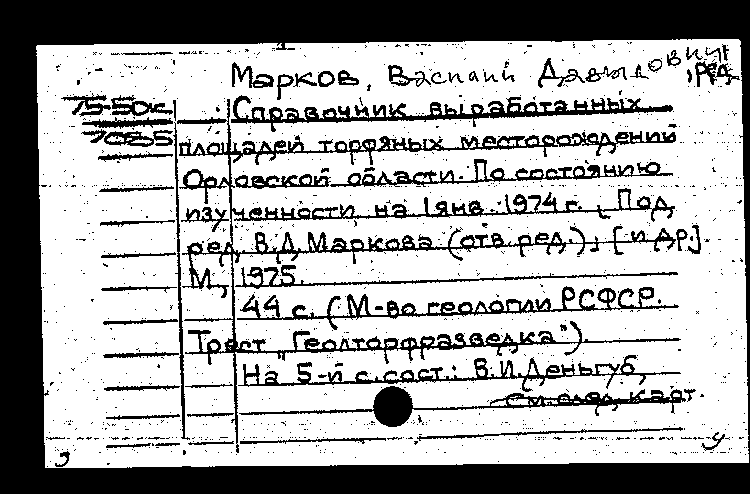 Марков, Василий Давыдович, ред.
75-50к Справочник выработанных
7085 площадей торфяных месторождений
Орловской области. По состоянию
изученности на 1 янв. 1974 г. Под
ред. В.Д. Маркова (отв. ред.), [и др.].
М., 1975.
44 с. (М-во геологии РСФСР.
Трест „Геолторфразведка").
На 5-й с. сост.: В.И. Деньгуб,
см. след. карт.